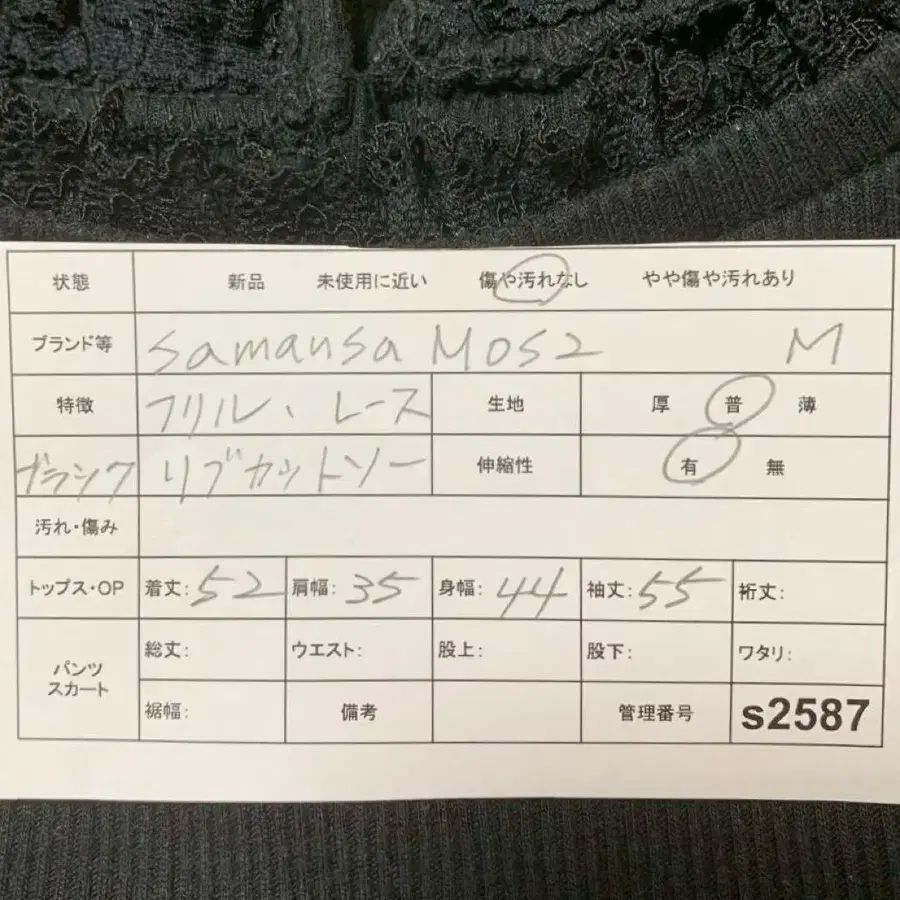 状態 新品 未使用に近い 傷や汚れなし やや傷や汚れあり
ブランド等 samansa MOS2 M
特徴 フリル、レース 生地 厚 普 薄
ブラック リブカットソー 伸縮性 有 無
汚れ・傷み
トップス・OP 着丈:52 肩幅:35 身幅:44 袖丈:55 裄丈:
パンツ スカート 総丈: ウエスト: 股上: 股下: ワタリ:
裾幅: 備考 管理番号 s2587